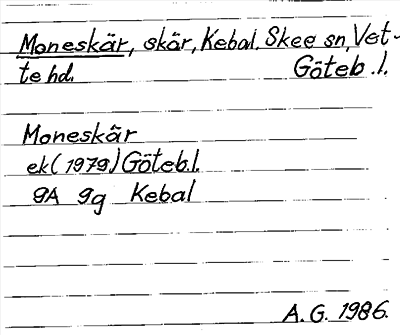 Moneskär, skär, Kebal, Skee sn, Vet-
te hd. Göteb. l.
Moneskär
ek (1979) Göteb. l.
9A 9g Kebal
A. G. 1986.